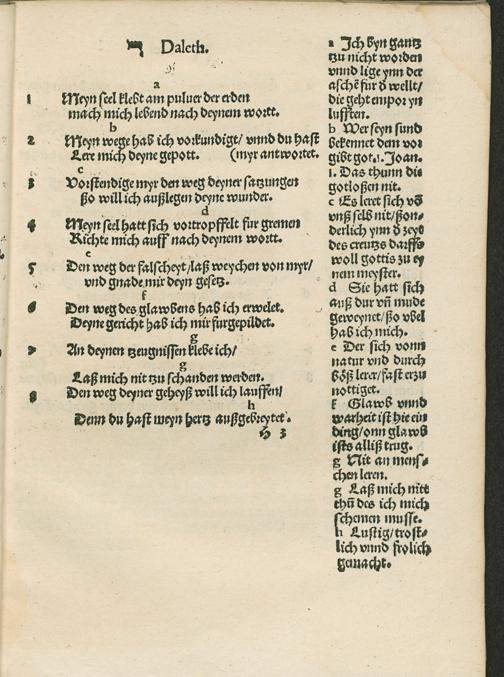 ד Daleth.
a
1 Meyn seel klebt am puluer der erden
mach mich lebend nach deynem wortt.
b
2 Meyn wege hab ich vorkundigt/ vnnd du hast
Lere mich deyne gepott. (myr antwortet.
c
3 Vorstendige myr den weg deyner satzungen
ßo will ich außlegen deyne wunder.
d
4 Meyn seel hatt sich vortropffelt fur gremen
Richte mich auff nach deynem wortt.
e
5 Den weg der falscheyt/ laß weychen von myr/
vnd gnade mir deyn gesetz.
f
6 Den weg des glawbens hab ich erwelet.
Deyne gericht hab ich mir furgepildet.
g
7 An deynen tzeugnissen klebe ich/
g
Laß mich nit tzu schanden werden.
8 Den weg deyner geheyß will ich lauffen/
h
Denn du hast meyn hertz außgebreytet.
H 3
a Ich byn gantz
tzu nicht worden
vnnd lige ynn der
aschē fur d wellt/
die geht empor yn
lufften.
b Wer seyn sund
bekennet dem vor
gibt got .1. Joan.
1. Das thunn die
gotloßen nit.
c Es leret sich vō
vnß selb nit/ ßon-
derlich ynn d zeyt
des creutzs darffs
woll gottis zu ey
nem meyster.
d Sie hatt sich
auß dur vn̄ mude
geweynet/ ßo vbel
hab ich mich.
e Der sich vonn
natur vnd durch
bößz lerer/ fast erzu
nottiget.
f Glawb vnnd
warheit ist hie ein
ding/ onn glawb
ists alliß trug.
g Nit an mens-
chen leren.
g Laß mich nitt
thū des ich mich
schemen musse.
h Lustig/ trost-
lich vnnd frolich
gemacht.